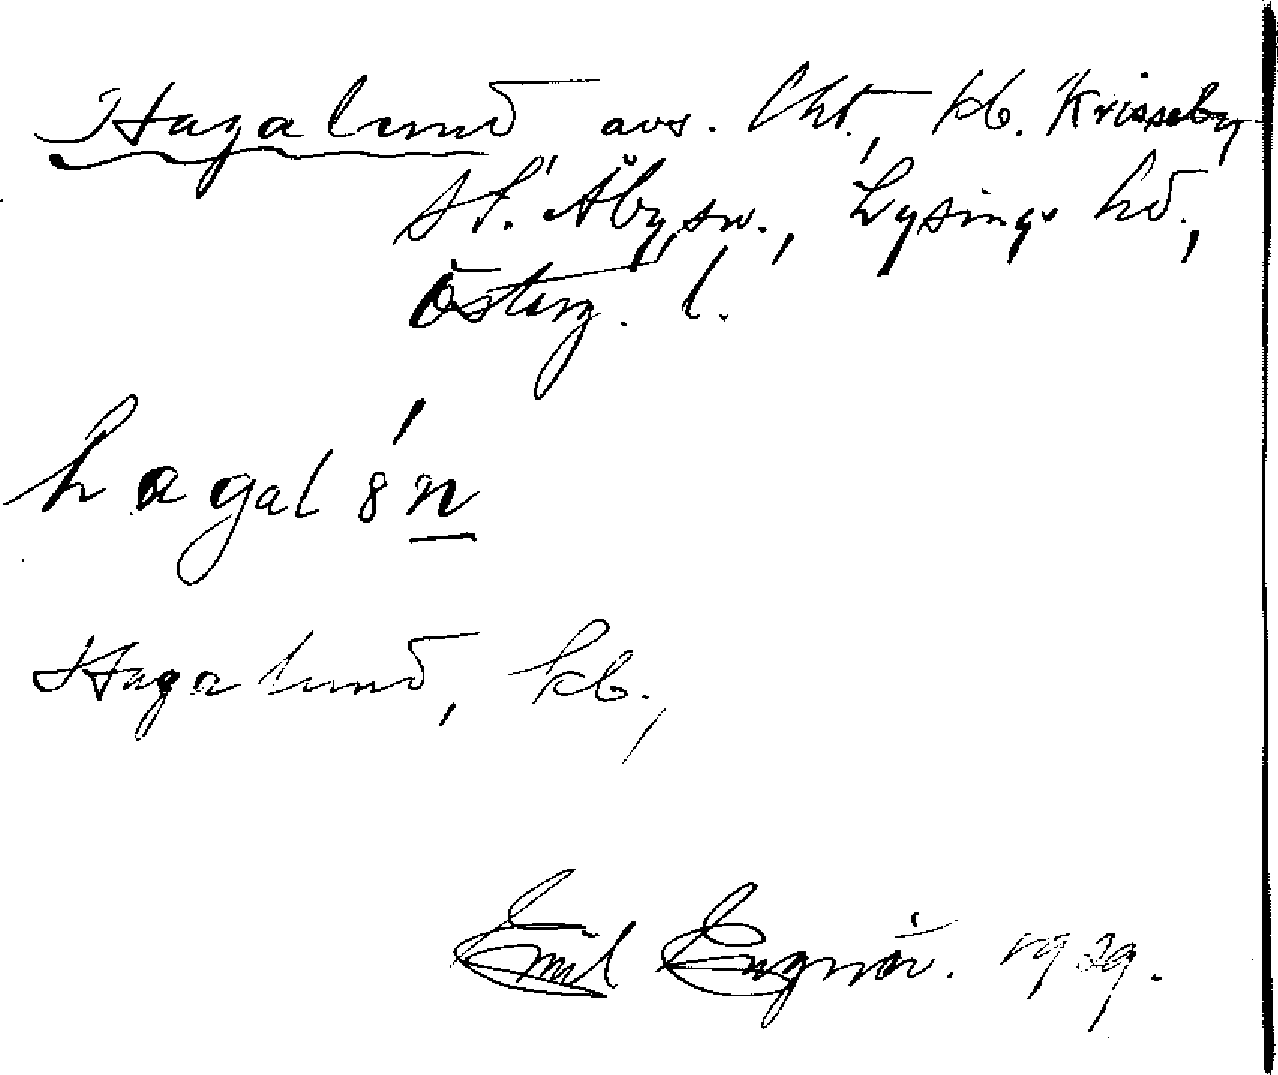 Hagalund avs. Cht., kb. Krisseby
St. Åby sn., Lysings hd.,
Österg. l.
hagalₒn
Hagalund, kb.,
Emil 1929.